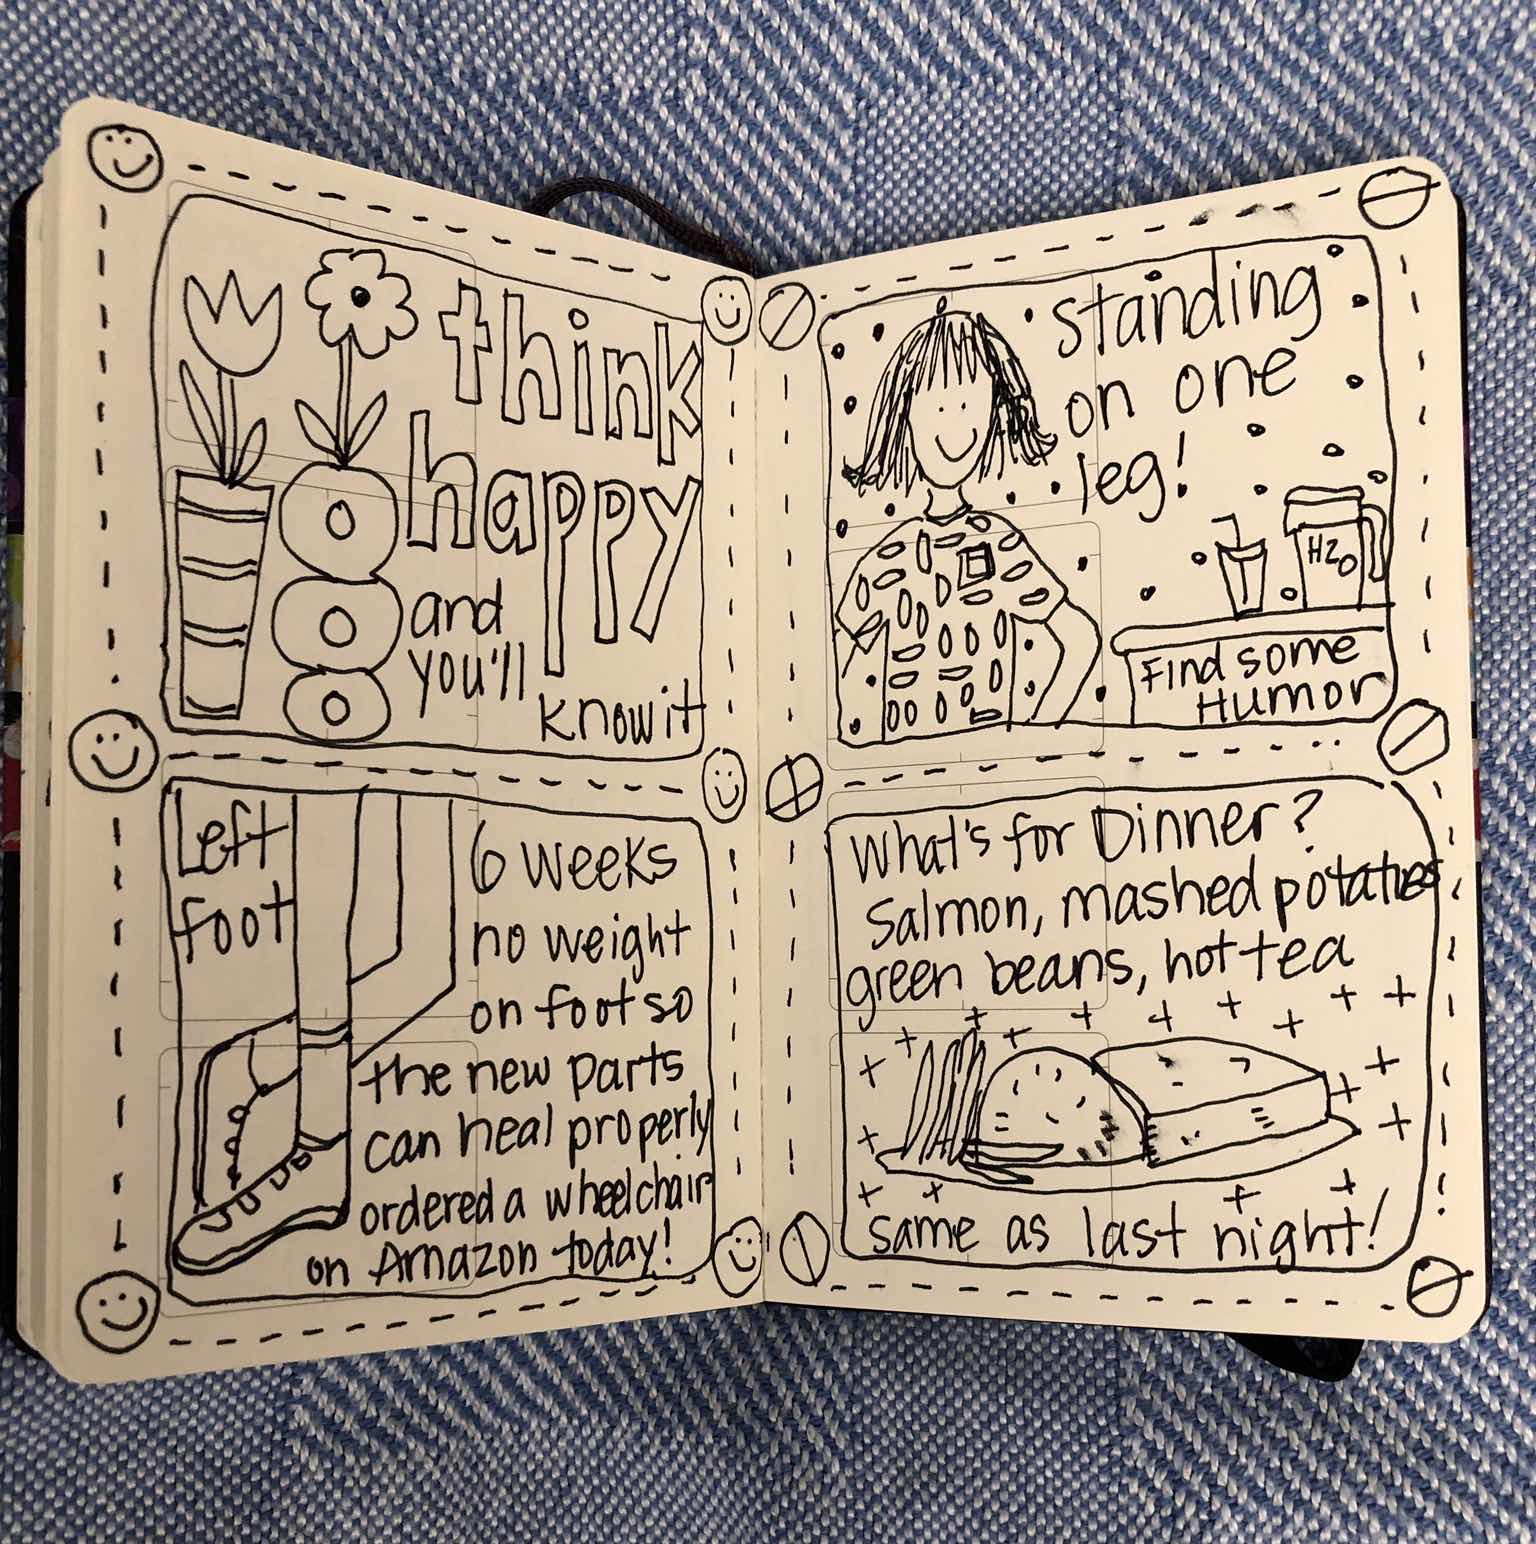 think
happy
and
you'll
know it
standing
on one
leg!
H2O
Find some
Humor
Left
foot
6 weeks
no weight
on foot so
the new parts
can heal properly
ordered a wheelchair
on Amazon today!
What's for Dinner?
Salmon, mashed potatoes
green beans, hot tea
same as last night!